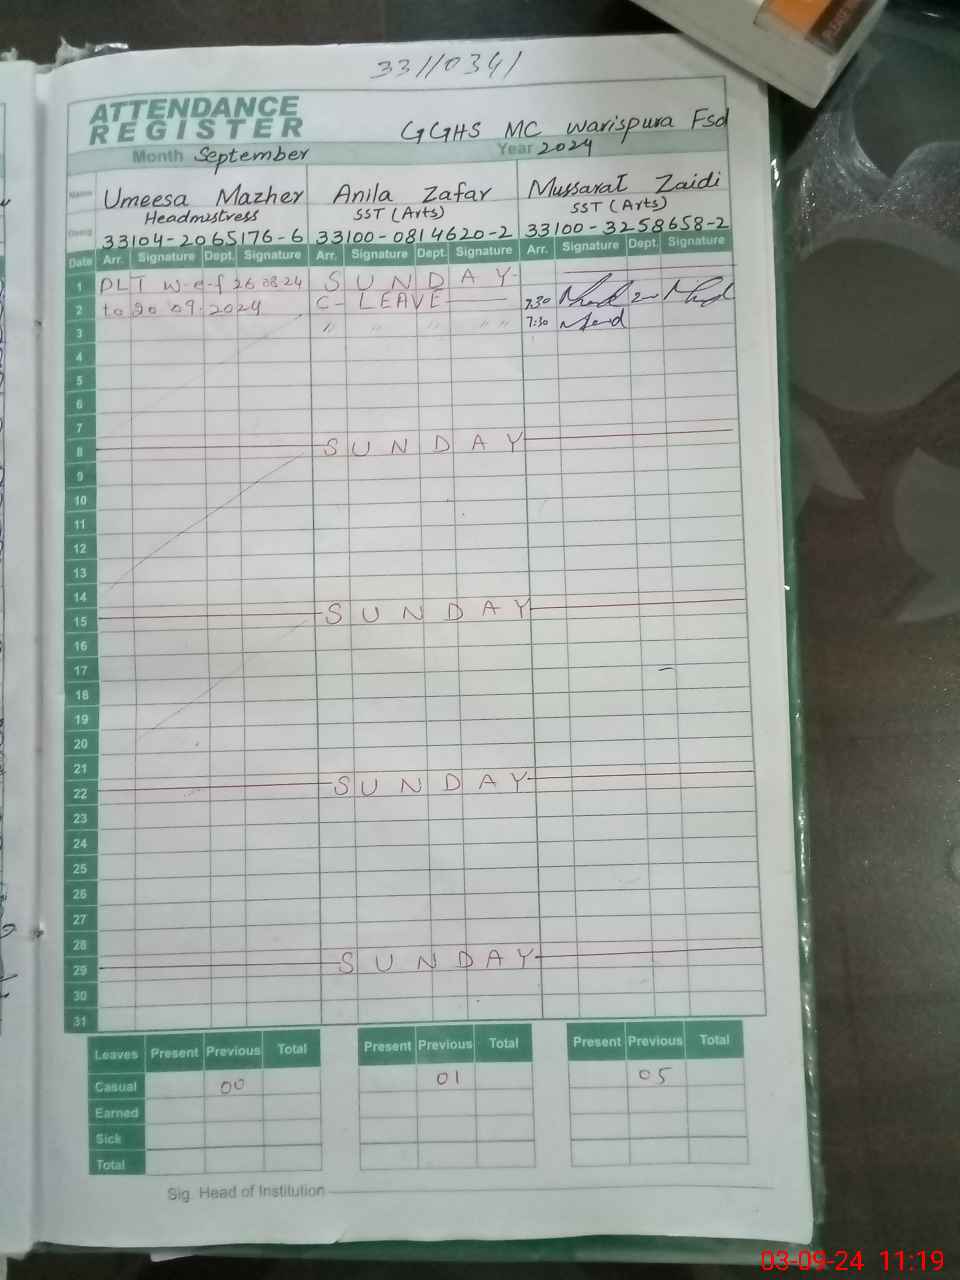 33110341
ATTENDANCE
REGISTER
GGHS MC Warispura Fsd
Month September Year 2024
Name Umeesa Mazher Anila Zafar Mussarat Zaidi
Headmistress SST (Arts) SST (Arts)
33104-2065176-6 33100-0814620-2 33100-3258658-2
Date Arr. Signature Dept. Signature Arr. Signature Dept. Signature Arr. Signature Dept. Signature
1 PLT w-e-f 26 08 24 SUNDAY
2 to 20 09. 2024 C- LEAVE 7:30
3 " " " " " 7:30
4
5
6
7
8 SUNDAY
9
10
11
12
13
14
15 SUNDAY
16
17
18
19
20
21
22 SUNDAY
23
24
25
26
27
28
29 SUNDAY
30
31
Leaves Present Previous Total Present Previous Total Present Previous Total
Casual 00 01 05
Earned
Sick
Total
Sig. Head of Institution
03-09-24 11:19